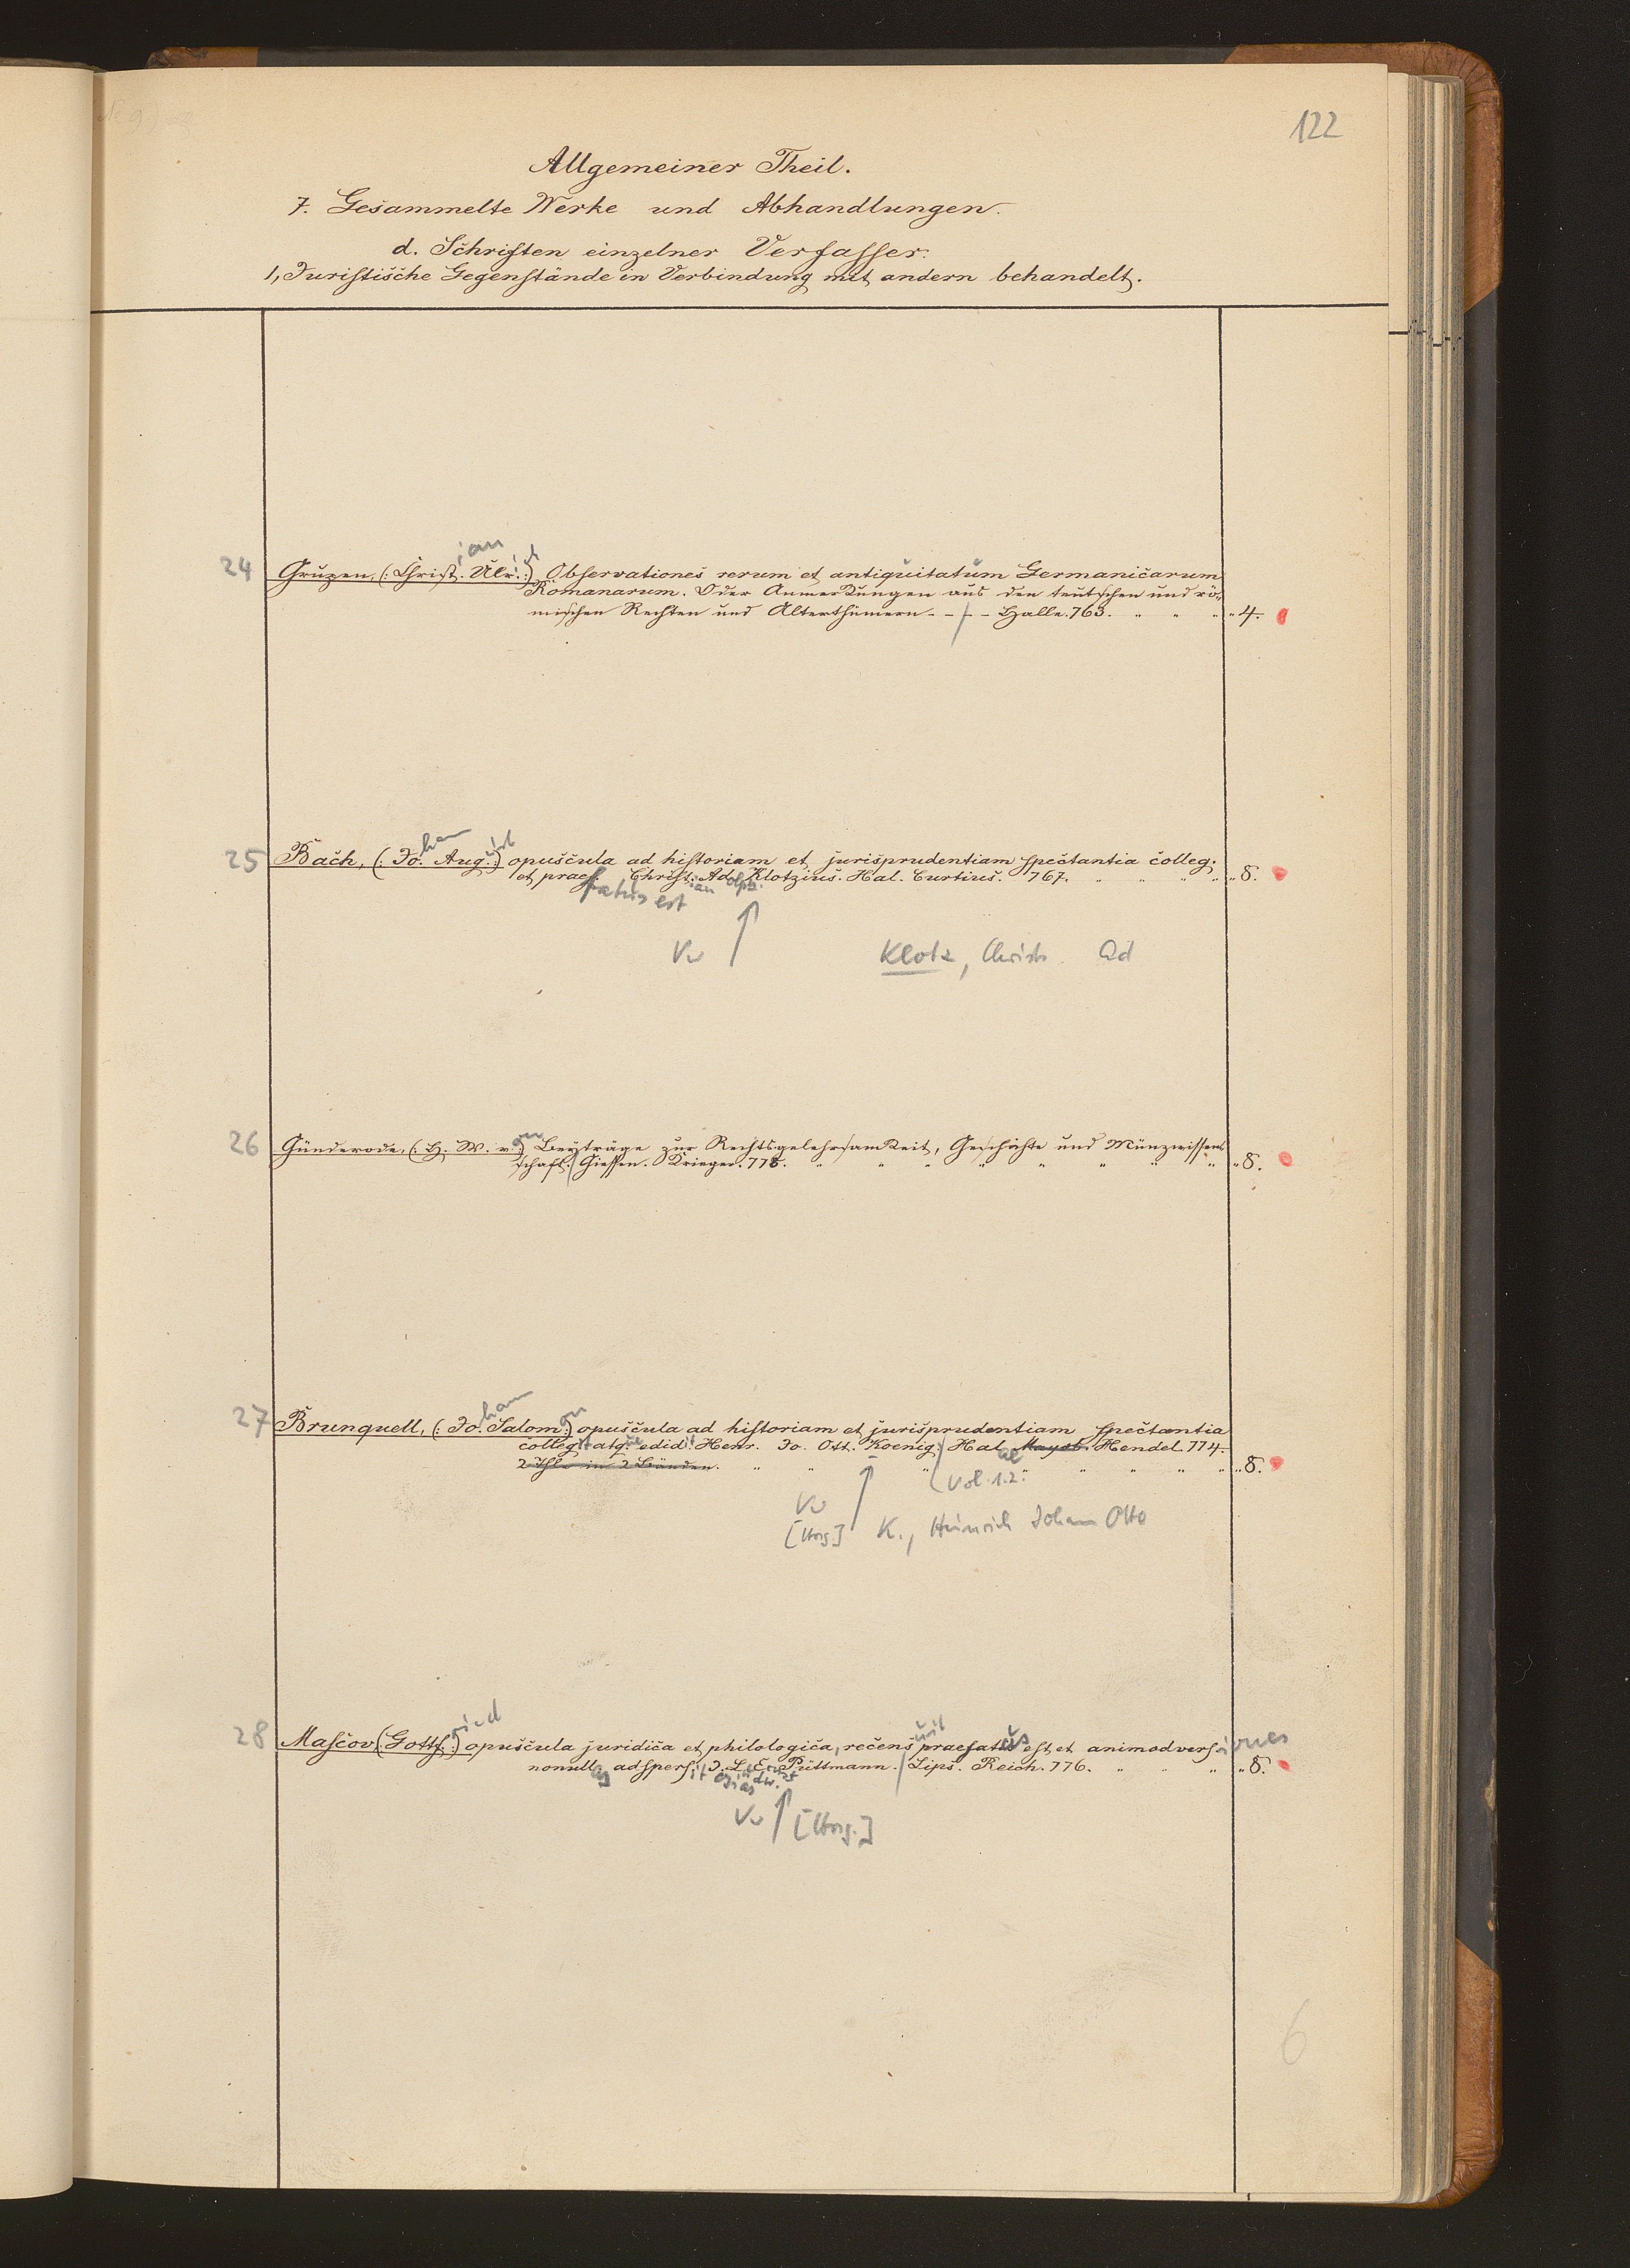 122
Allgemeiner Theil.
7. Gesammelte Werke und Abhandlungen.
d. Schriften einzelner Verfasser.
1, Juristische Gegenstände in Verbindung mit andern behandelt.
24 Grupen, (: Christian. Ulrich :) Observationes rerum et antiquitatum Germanicarum
Romanarum. Oder Anmerkungen aus den teutschen und rö-
mischen Rechten und Alterthümern - - / - - Halle. 763. " " " " 4.
25 Bach, (: Johan. August :) opuscula ad historiam et jurisprudentiam spectantia colleg.
et praefatus est Christian. Adolph. Klotzius. Hal. Curtius. 767. " " " " 8.
Vw Klotz, Christ. Ad
26 Günderode, (: H. W. von :) Beyträge zur Rechtsgelehrsamkeit, Geschichte und Münzwissen-
schaft. / Giessen. Krieger. 778. " " " " " " " " 8.
27 Brunquell, (: Joham. Salomon :) opuscula ad historiam et jurisprudentiam spectantia
collegit atque edidit Henr. Jo. Ott. Koenig. / Halae Hendel. 774.
2 Thle in 2 Bänden. " " " Vol. 1.2. " " " " " 8.
Vw
[Hrsg.] K., Heinrich Johann Otto
28 Mascov (: Gottfried :) opuscula juridica et philologica, recensuit praefatus est et animadversiones
nonullas adspersit Josias Ludw. Ernst Püttmann. / Lips. Reich. 776. " " " " 8.
Vw [Hrsg.]
6